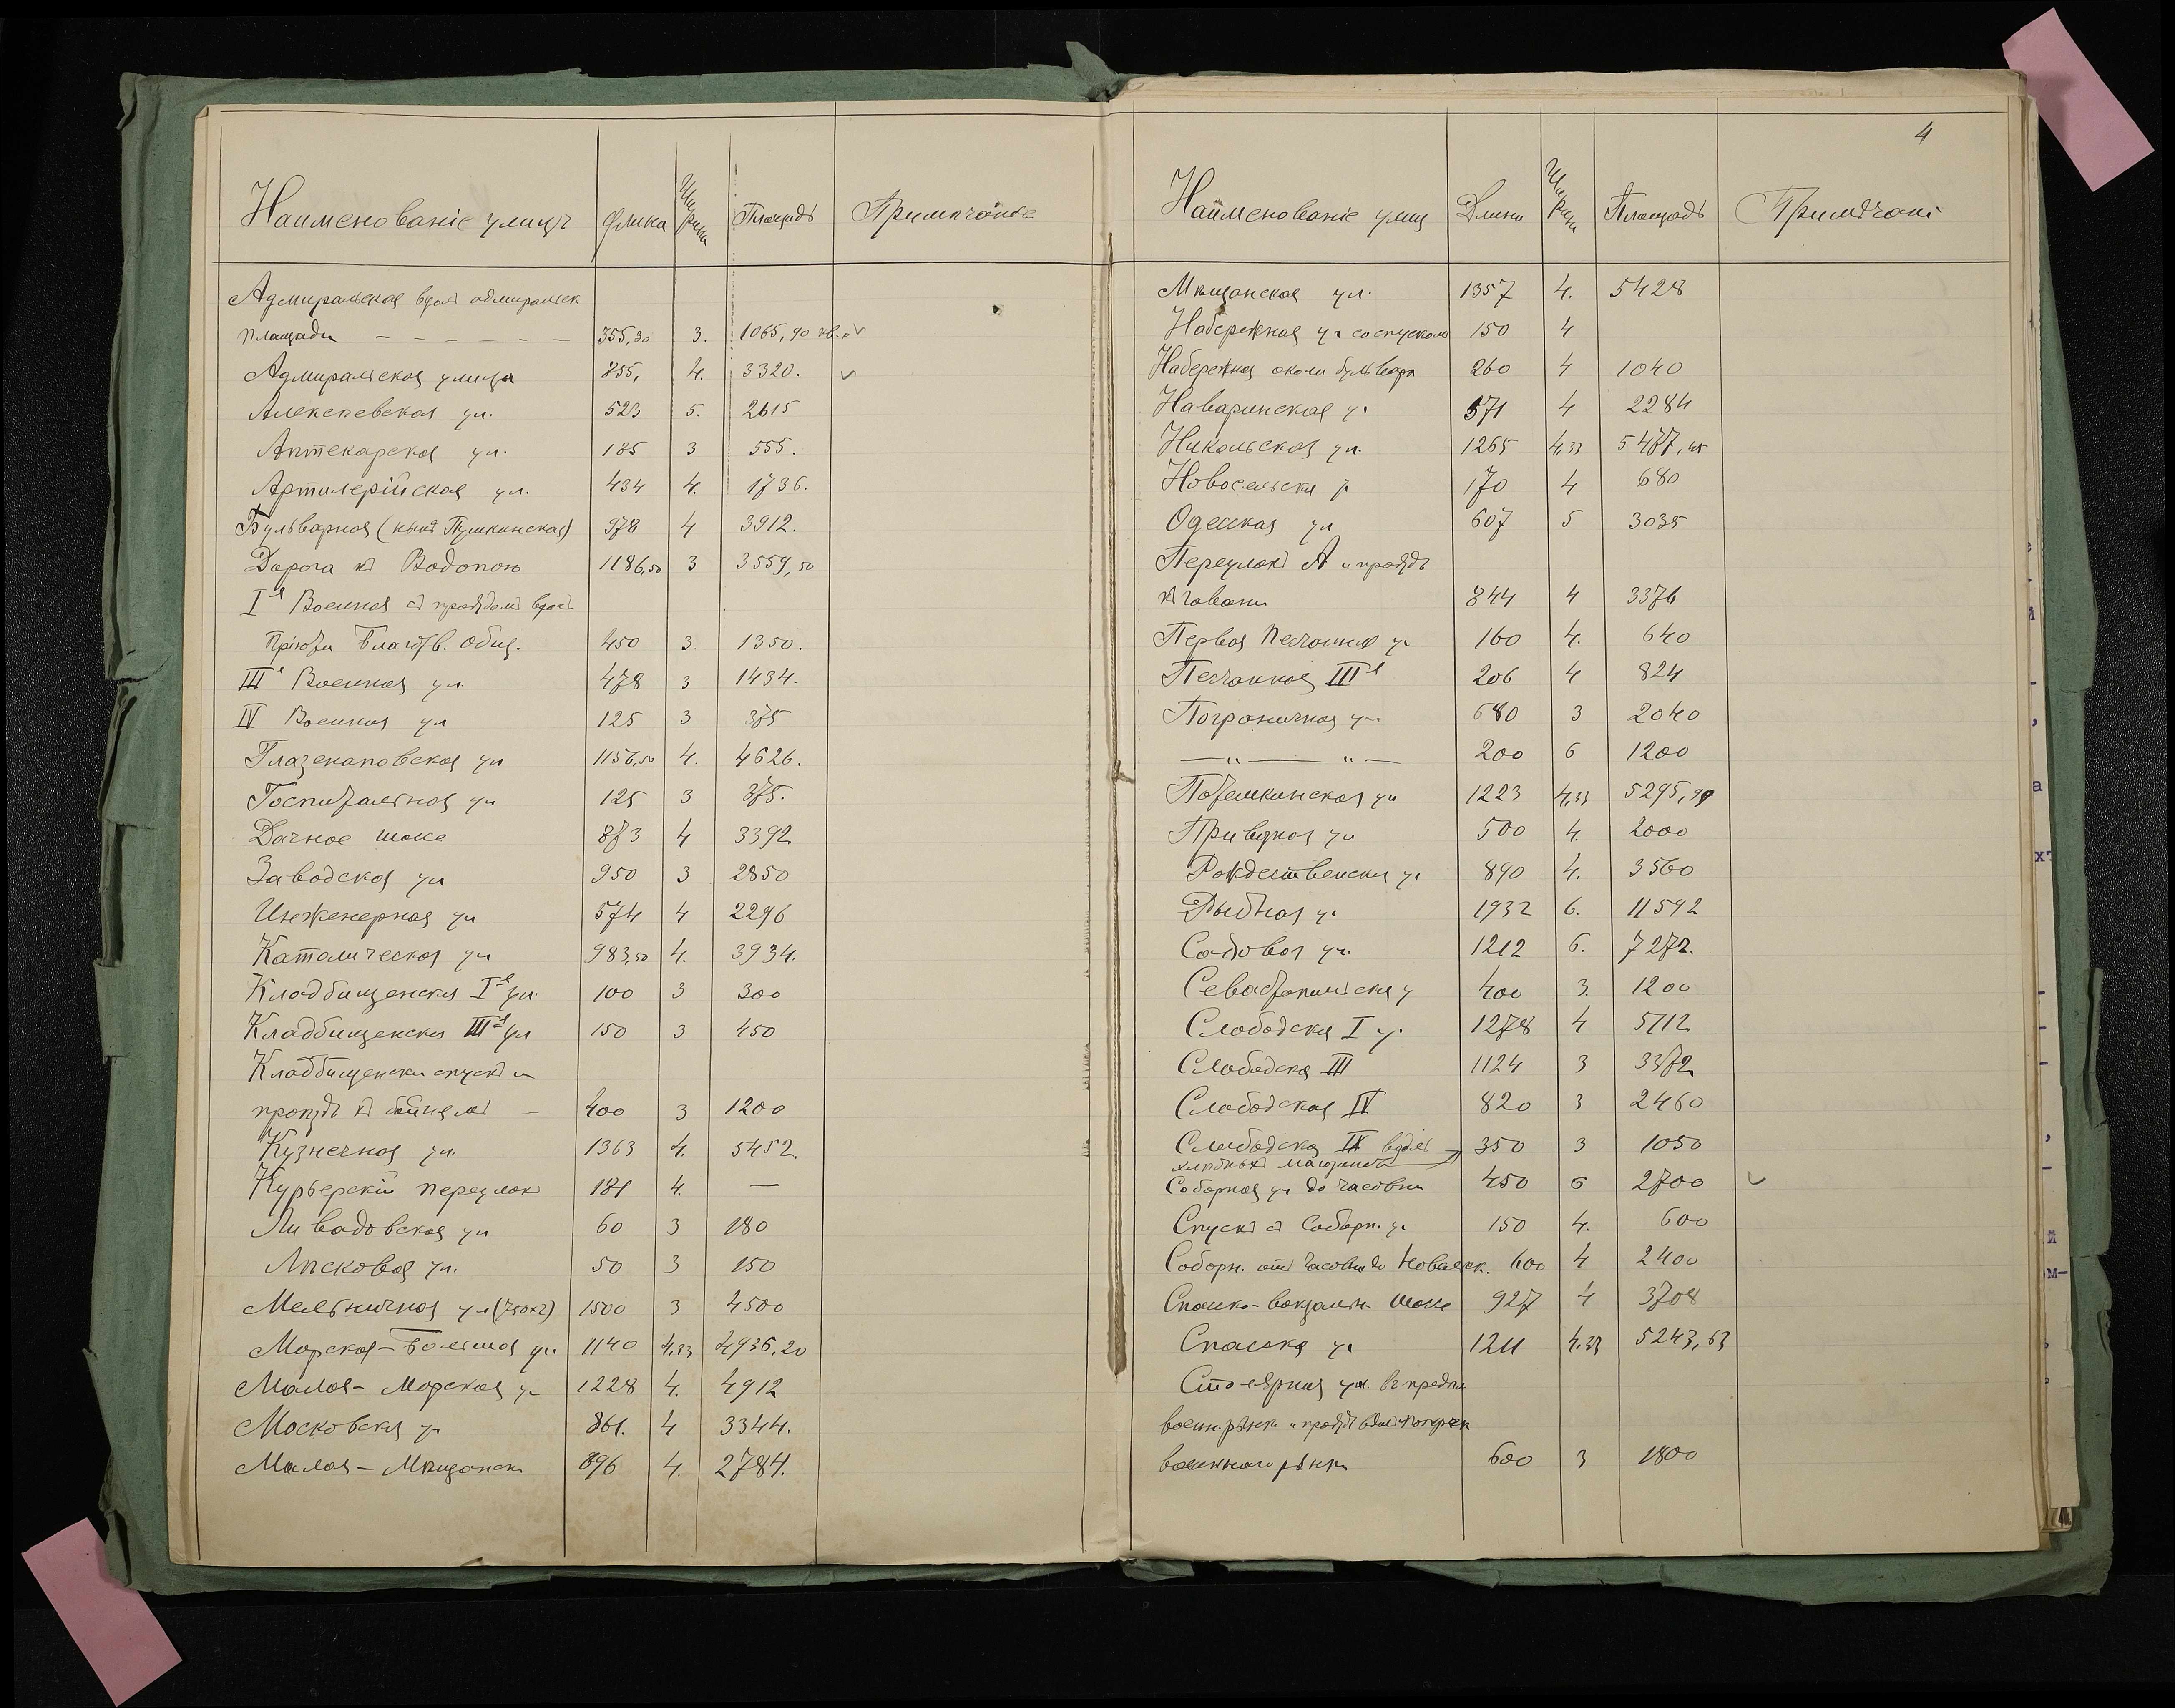 Наименованіе улицъ Длина Ширина Площадь Примѣчаніе
Адмиральская вдоль адмиральск.
площади — — — — — — 355,30 3. 1065,90 кв. с. ✓
Адмиральская улица 855, 4. 3320. ✓
Алексѣевская ул. 523 5. 2615
Аптекарская ул. 185 3 555.
Артилерійская ул. 434 4. 1736.
Бульварная (нынѣ Пушкинская) 978 4 3912.
Дорога къ Водопою 1186,50 3 3559,50
Iя Военная съ проѣздомъ вдоль
пріюта Благотв. Общ. 450 3. 1350.
IIIя Военная ул. 478 3 1434.
IV Военная ул 125 3 375
Глазенаповская ул 1156,50 4. 4626.
Госпитальная ул 125 3 375.
Дачное шоссе 873 4 3392
Заводская ул 950 3 2850
Инженерная ул 574 4 2296
Католическая ул 983,50 4. 3934.
Кладбищенская Iя ул. 100 3 300
Кладбищенская IIIя ул 150 3 450
Кладбищенски спускъ и
проѣздъ къ бойнямъ — 400 3 1200
Кузнечная ул. 1363 4. 5452
Курьерскій переулокъ 181 4. —
Ливадовская ул 60 3 180
Лѣсковая ул. 50 3 150
Мельничная ул (750х2) 1500 3 4500
Морская-Большая ул. 1140 4,33 4936,20
Малая-Морская ул 1228 4. 4912
Московская ул 861. 4 3344.
Малая-Мѣщанск 896 4. 2784.
4
Наименованіе улиц Длина Ширина Площадь Примѣчані
Мѣщанская ул. 1357 4. 5428
Набережная ул со спускомъ 150 4
Набережная около бульвара 260 4 1040
Наваринская ул 571 4 2284
Никольская ул. 1265 4,33 5477,45
Новосельская ул 170 4 680
Одесская ул 607 5 3035
Переулокъ А и проѣздъ
къ гавани 844 4 3376
Первая Песчанная ул 160 4. 640
Песчанная IIIя 206 4 824
Пограничная ул. 680 3 2040
— " — " — 200 6 1200
Потемкинская ул 1223 4,33 5295,99
Привозная ул 500 4. 2000
Рождественская ул 890 4. 3560
Рыбная ул 1932 6. 11592
Садовая ул. 1212 6. 7272.
Севастопольская у 400 3. 1200
Слободская I ул. 1278 4 5112
Слободская III 1124 3 3372
Слободская IV 820 3 2460
Слободская IX вдоль 350 3 1050
хлѣбныхъ магазиновъ
Соборная ул до часовни 450 6 2700 ✓
Спускъ съ Соборн. ул 150 4. 600
Соборн. отъ часовни до Новосѣск. 600 4 2400
Спасско-вокзальн. шоссе 927 4 3708
Спасская ул 1211 4,33 5243,63
Столярная ул. въ предѣл
воен. рынка и проѣздъ
военнаго рынка 600 3 1800